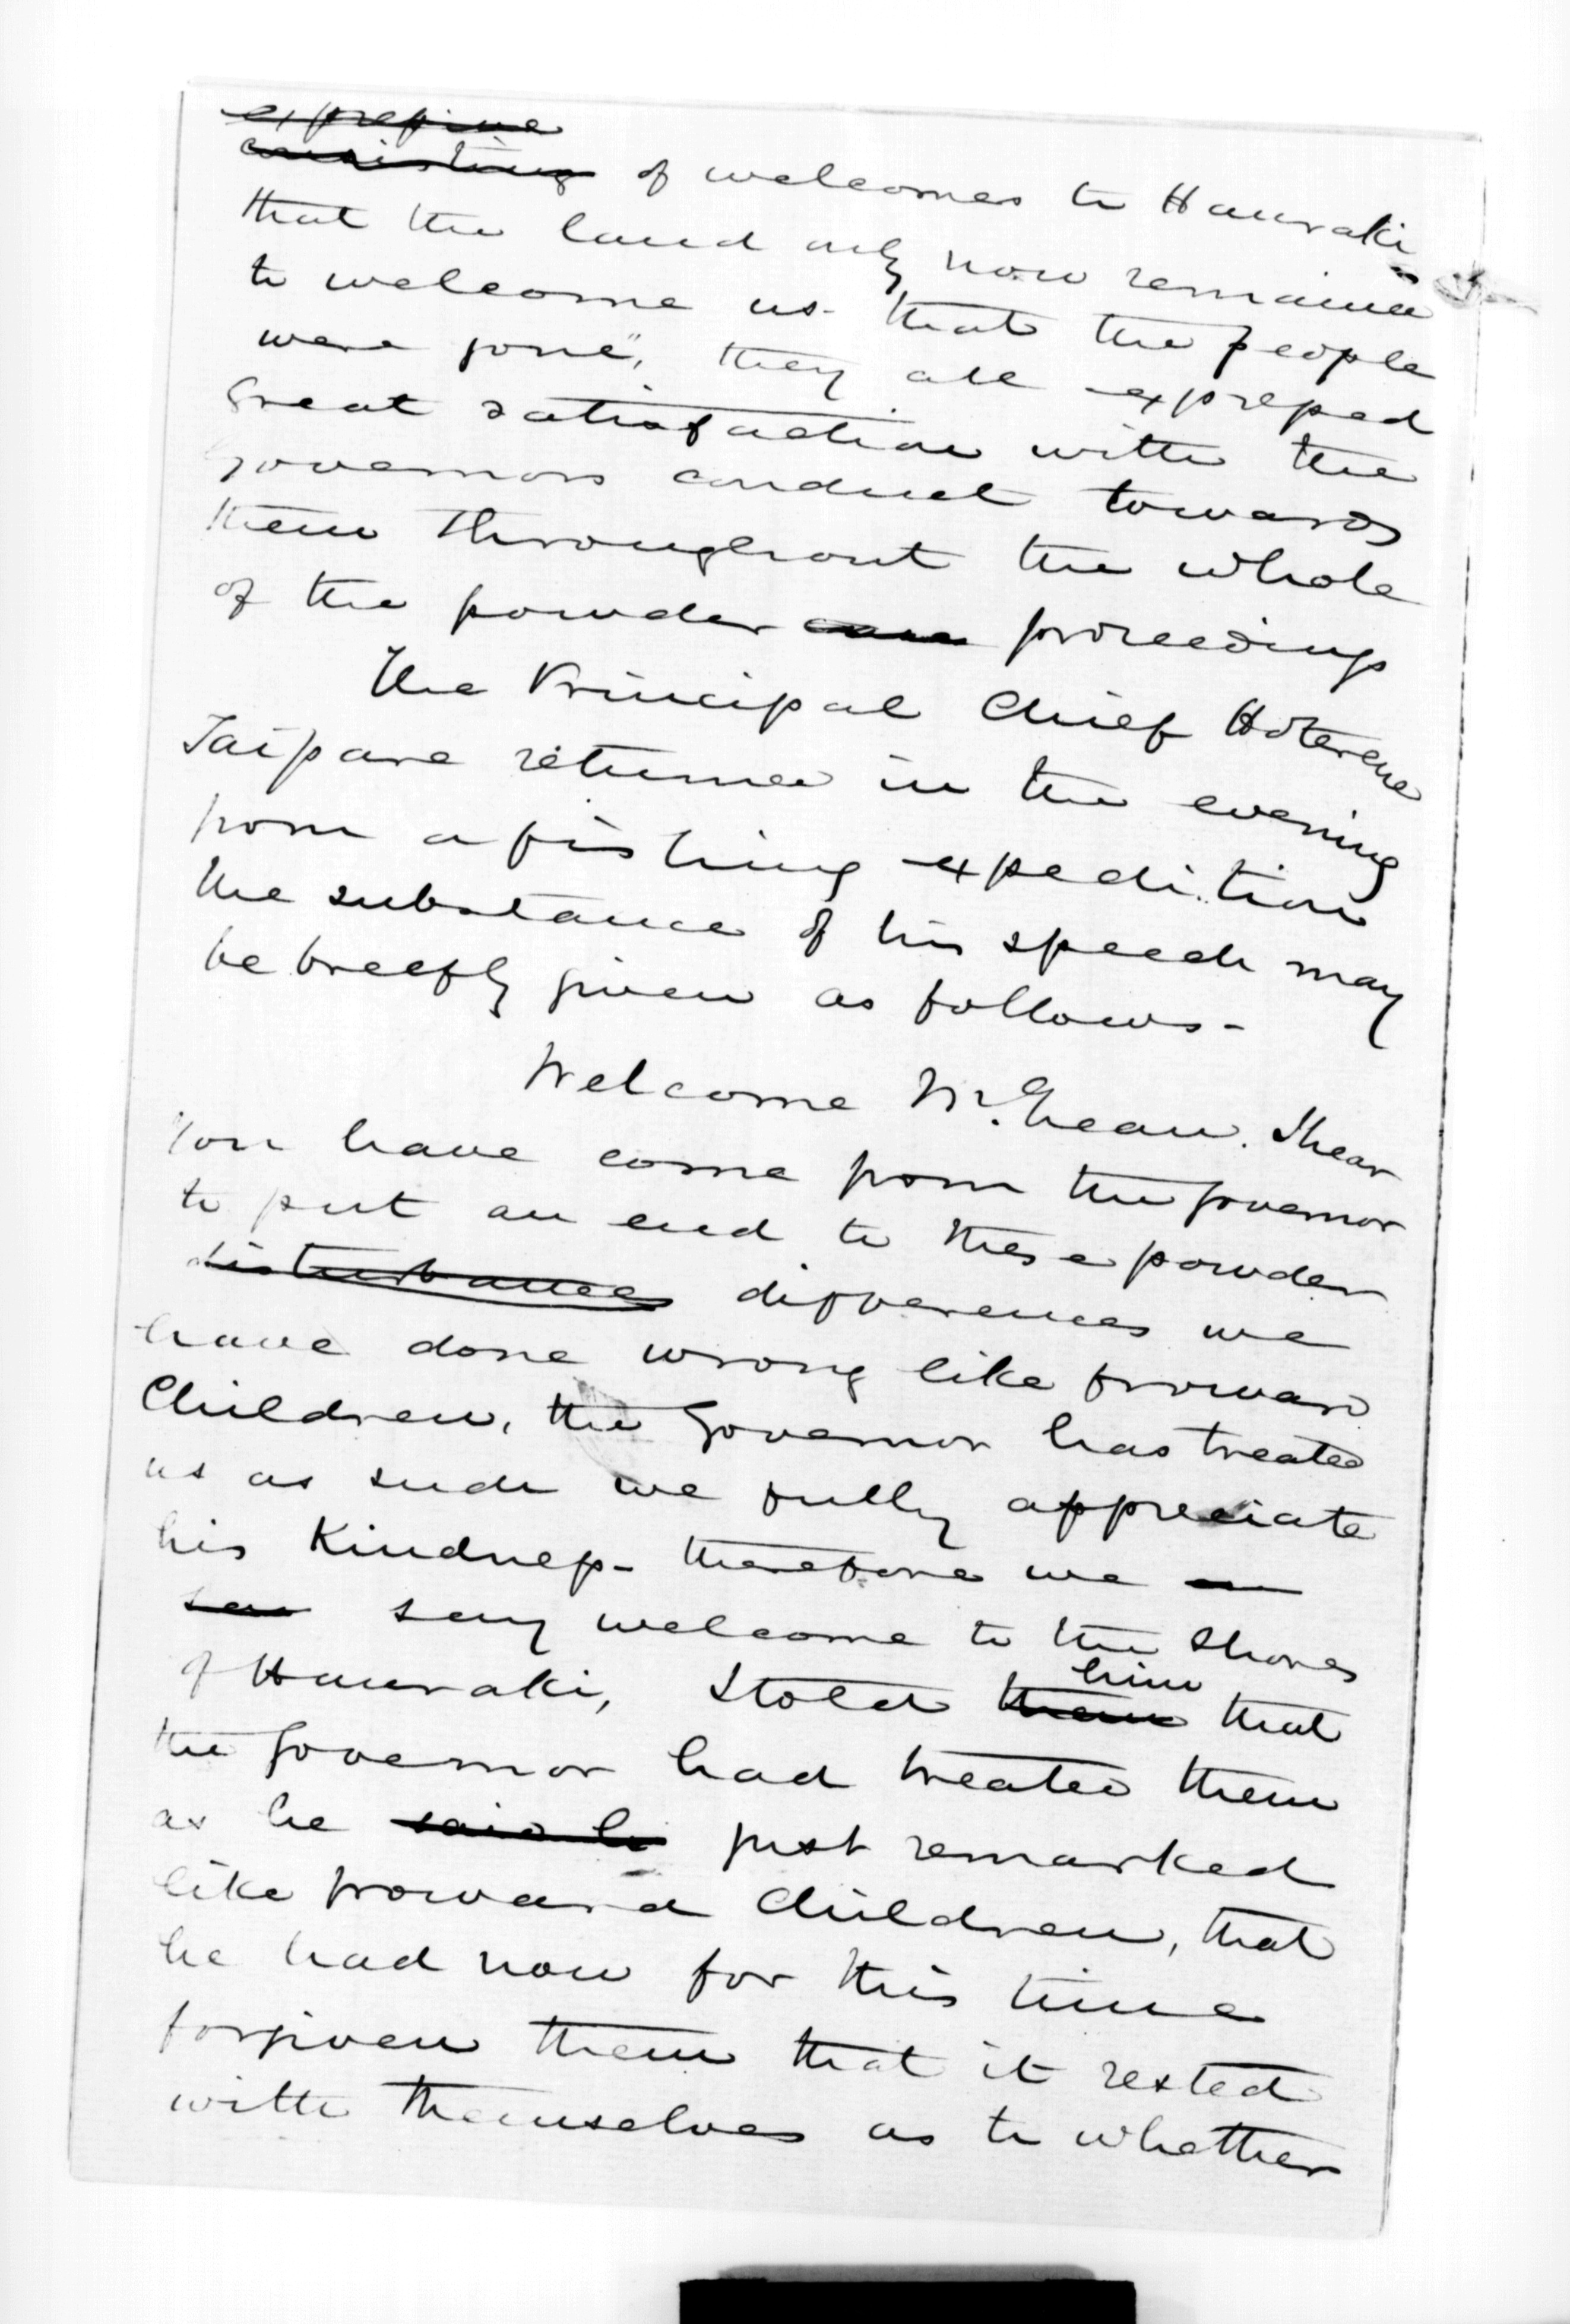 expressive
consisting of welcomes to Hauraki
that the land only now remained
to welcome us. that the people
were gone", they all expressed
great satisfaction with the
Governors conduct towards
them throughout the whole
of the powder proceedings
The Principal Chief Hoterene
Taipare returned in the evening
from a fishing expedition
the substance of his speech may
be breefly given as follows -
Welcome McLean. I hear
You have come from the Governor
to put an end to these powder
disturbances differences we
have done wrong like froward
Children, the Governor has treated
us as such we fully appreciate
his Kindness - therefore we
say welcome to the Shores
of Hauraki, I told them him that
the Governor had treated them
as he said he just remarked
like froward Children, that
he had now for this time
forgiven them that it rested
with themselves as to whether